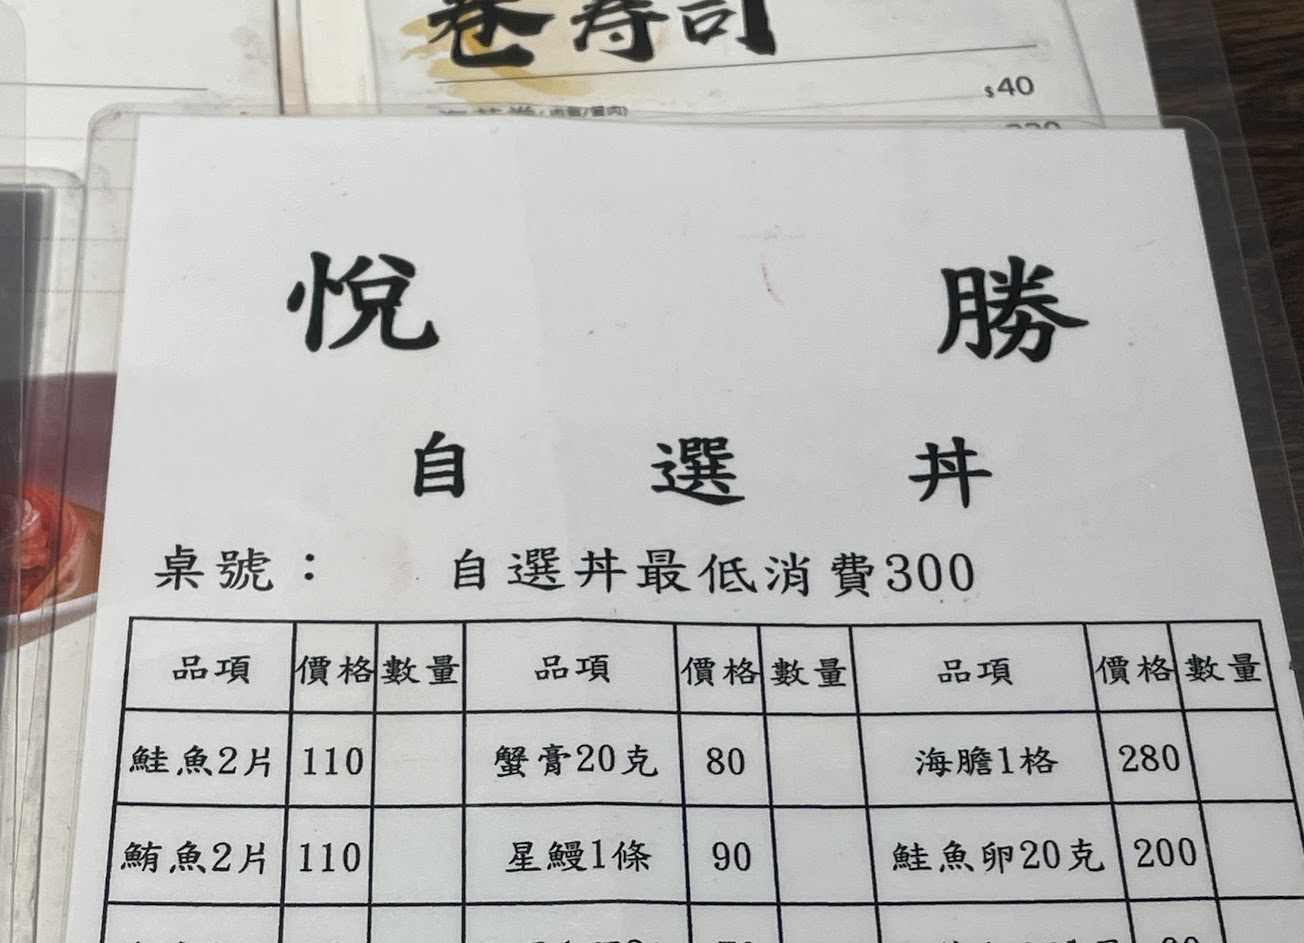 卷壽司
$40
悅 勝
自 選 丼
桌號： 自選丼最低消費300
品項 價格 數量 品項 價格 數量 品項 價格 數量
鮭魚2片 110 蟹膏20克 80 海膽1格 280
鮪魚2片 110 星鰻1條 90 鮭魚卵20克 200